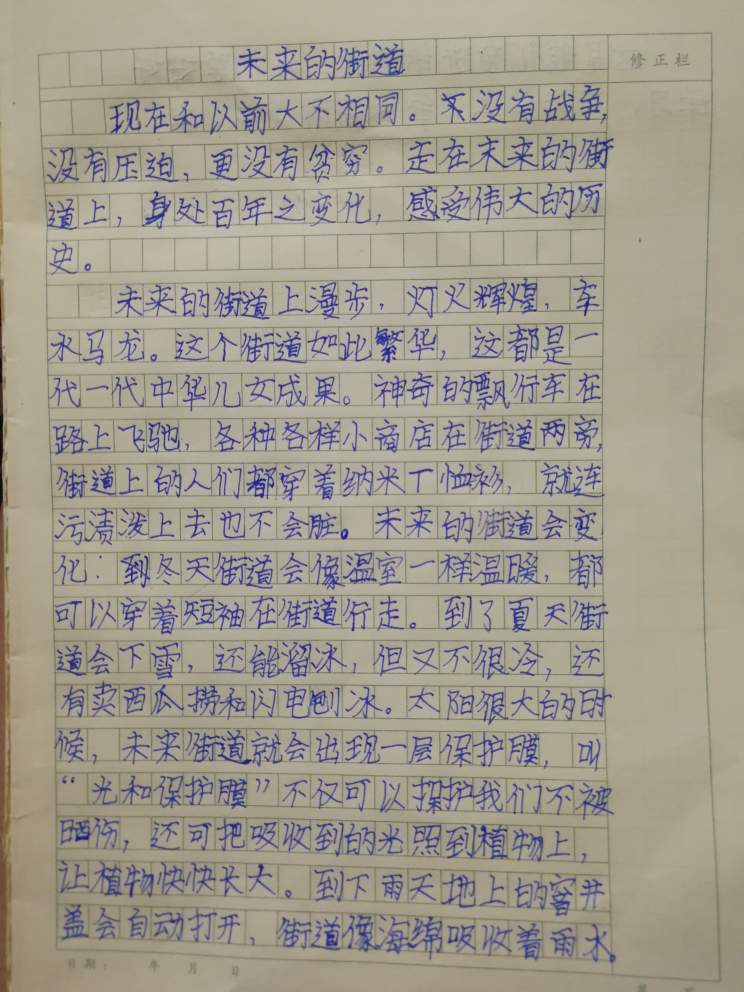 未来的街道
修正栏
现在和以前大不相同。不没有战争,
没有压迫，更没有贫穷。走在未来的街
道上，身处百年之变化，感受伟大的历
史。
未来的街道上漫步，灯火辉煌，车
水马龙。这个街道如此繁华，这都是一
代一代中华儿女成果。神奇的飘行车在
路上飞驰，各种各样小商店在街道两旁,
街道上的人们都穿着纳米T恤衫，就连
污渍泼上去也不会脏。未来的街道会变
化：到冬天街道会像温室一样温暖，都
可以穿着短袖在街道行走。到了夏天街
道会下雪，还能溜冰，但又不很冷，还
有卖西瓜捞和闪电刨冰。太阳很大的时
候，未来街道就会出现一层保护膜，叫
“光和保护膜”不仅可以保护我们不被
晒伤，还可把吸收到的光照到植物上，
让植物快快长大。到下雨天地上的窨井
盖会自动打开，街道像海绵吸收着雨水。
日期： 年 月 日